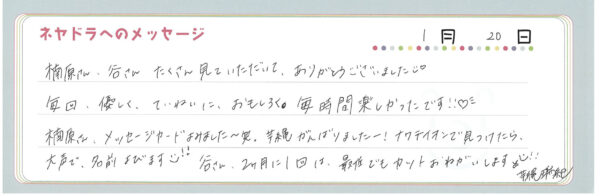 ネヤドラへのメッセージ
1月 20日
楠原さん、谷さん たくさん見ていただいて、ありがとうございました♡
毎回、優しく、ていねいに、おもしろく。毎時間楽しかったです!!♡
楠原さん、メッセージカードよみました〜笑。芋縄がんばりましたー！ナワテイオンで見つけたら、
大声で、名前よびます!! 谷さん、2ヶ月に1回は、最低でもカットおねがいします!!